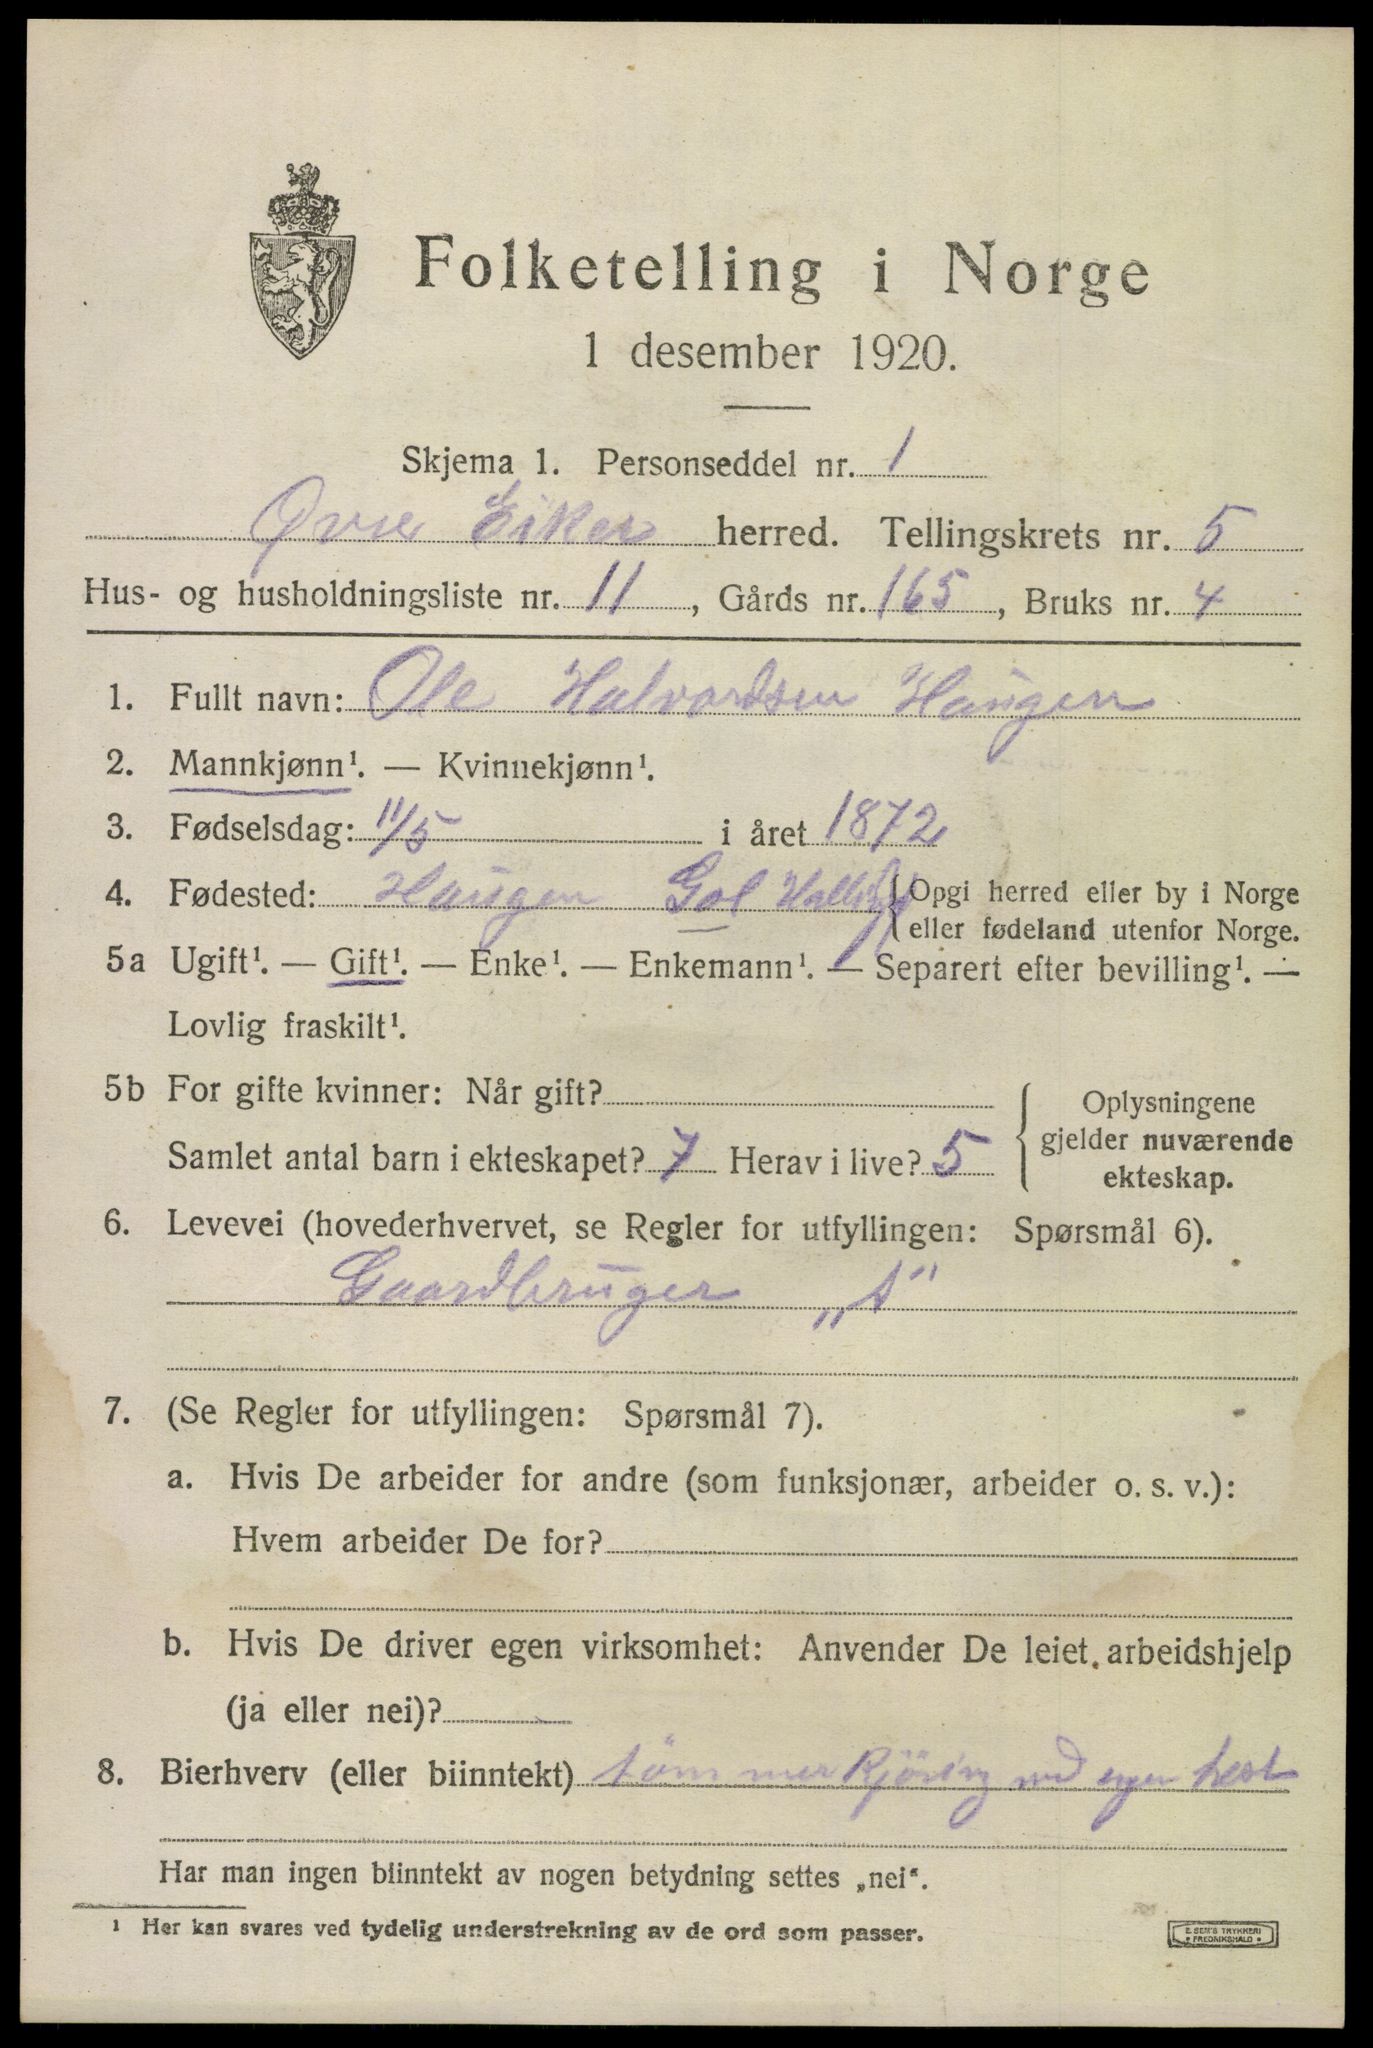 Folketelling i Norge
1 desember 1920.
Skjema 1. Personseddel nr. 1
Øvre Eiker herred. Tellingskrets nr. 5
Hus- og husholdningsliste nr. 11, Gårds nr. 165, Bruks nr. 4
1. Fullt navn: Ole Halvordsen Haugen
2. Mannkjønn¹. — Kvinnekjønn¹.
3. Fødselsdag: 11/5 i året 1872
4. Fødested: Haugen Gol { Opgi herred eller by i Norge
eller fødeland utenfor Norge.
5a Ugift¹. — Gift¹. — Enke¹. — Enkemann¹. — Separert efter bevilling¹. —
Lovlig fraskilt¹.
5b For gifte kvinner: Når gift?
Samlet antal barn i ekteskapet? 7 Herav i live? 5
{ Oplysningene
gjelder nuværende
ekteskap.
6. Levevei (hovederhvervet, se Regler for utfyllingen: Spørsmål 6).
Gaardbruger „A"
7. (Se Regler for utfyllingen: Spørsmål 7).
a. Hvis De arbeider for andre (som funksjonær, arbeider o. s. v.):
Hvem arbeider De for?
b. Hvis De driver egen virksomhet: Anvender De leiet arbeidshjelp
(ja eller nei)?
8. Bierhverv (eller biinntekt) tömmerkjöring med egen hest
Har man ingen biinntekt av nogen betydning settes „nei“.
¹ Her kan svares ved tydelig understrekning av de ord som passer.
E. SEM'S TRYKKERI
• FREDRIKSHALD •